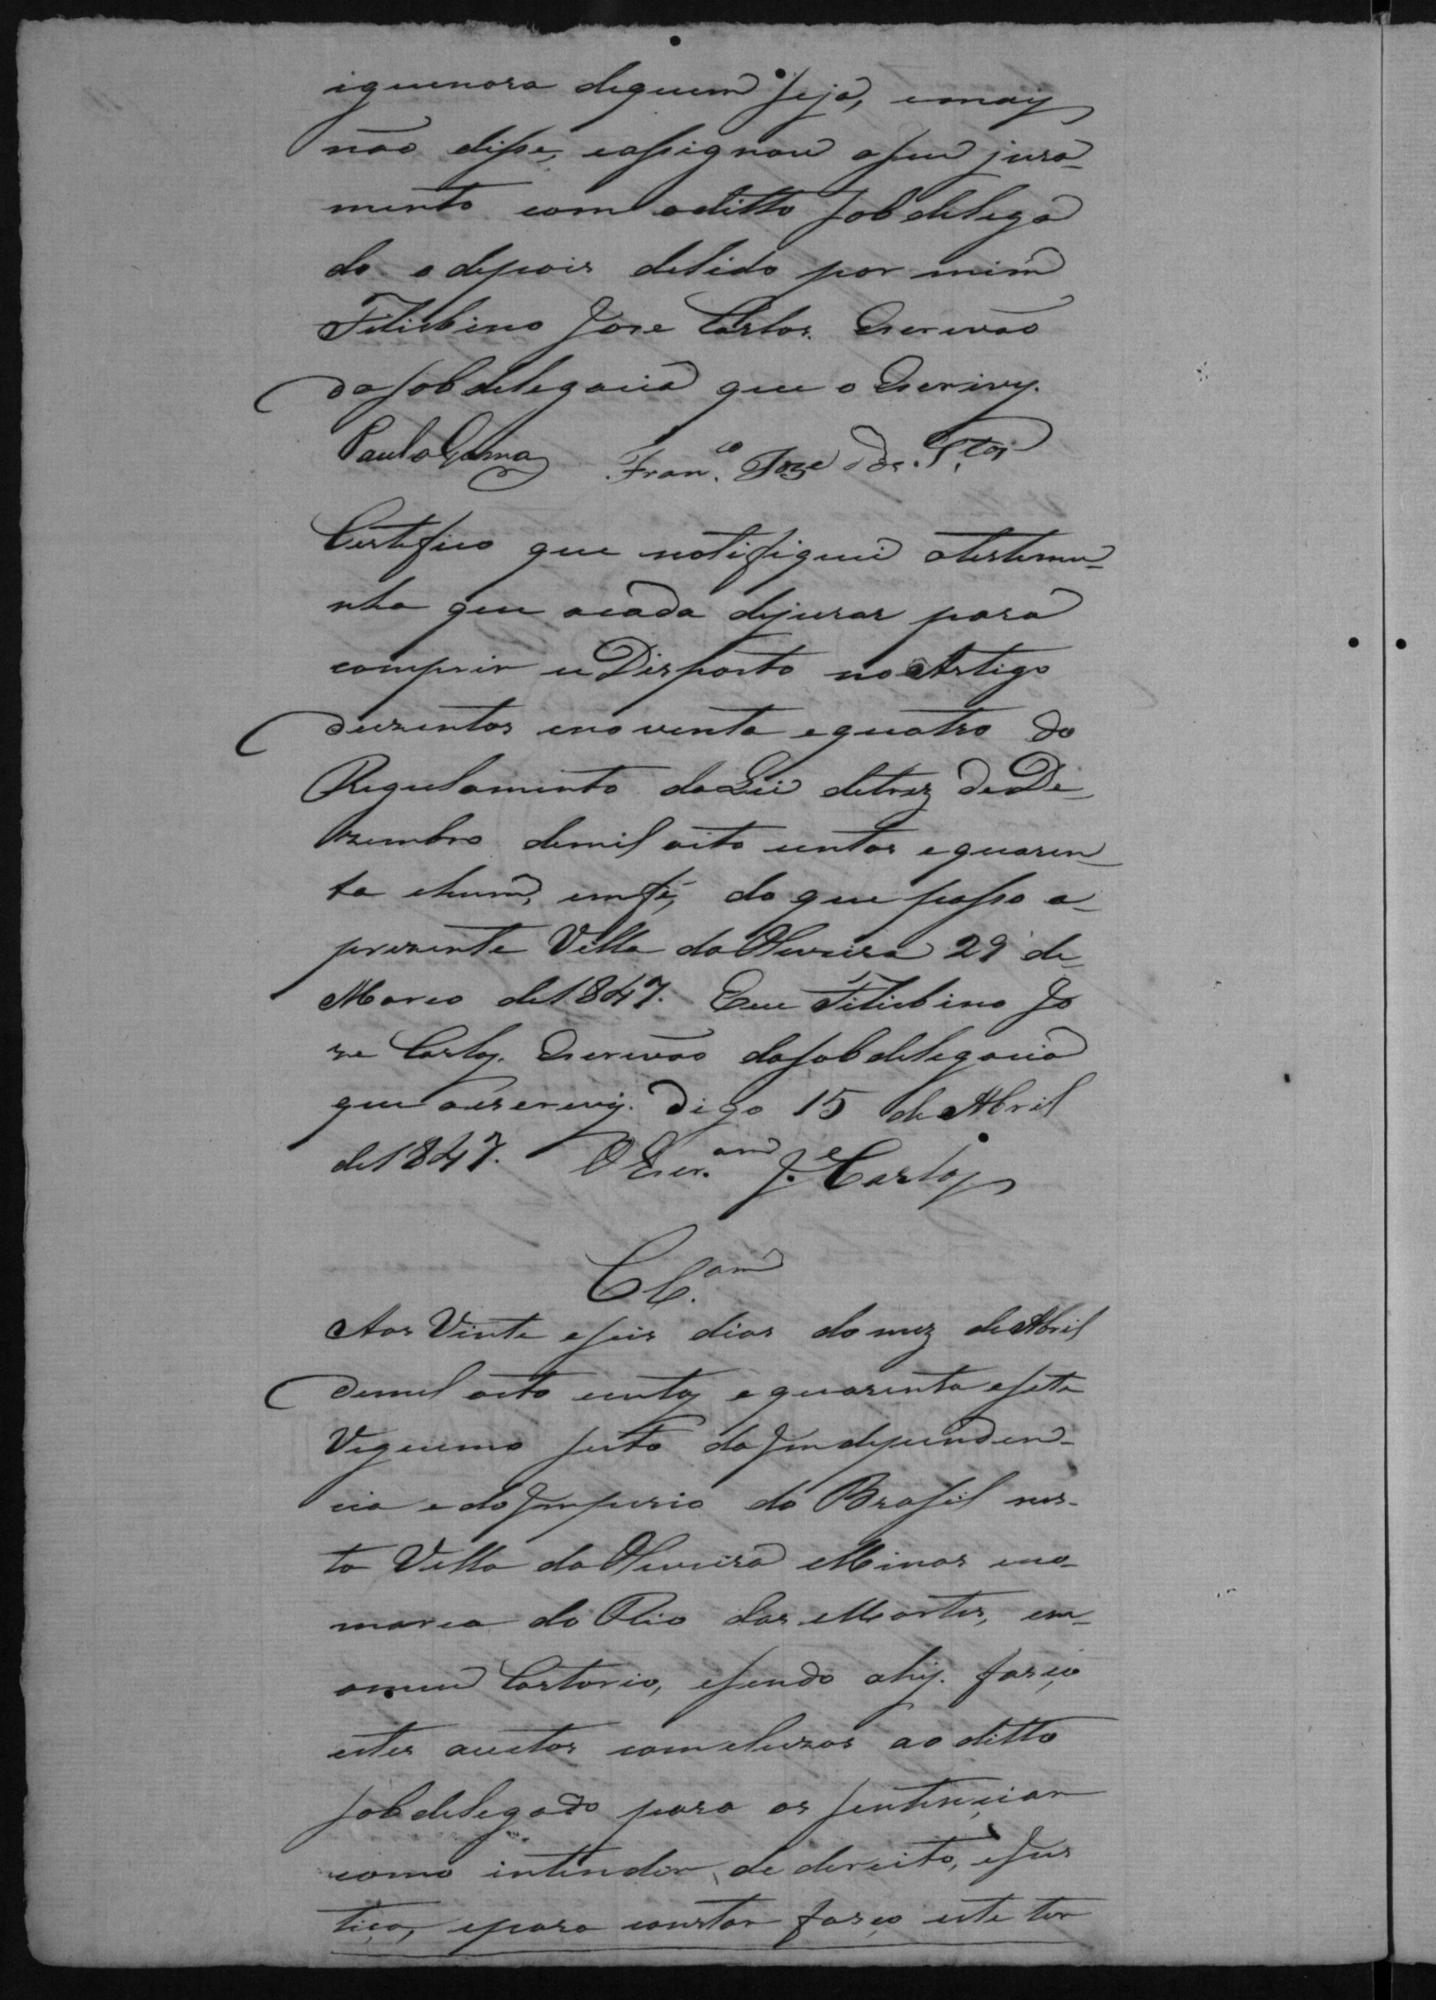 iguenora dequem seja, emay
não disse, eassignou oseu jura-
mento com oditto Sobdelega
do e depois delido por mim
Filisbino Jose Carlos. Escrivão
daSobdelegacia que o Escrivy.
Paulo Gama Fran.co Joze de S.tos
Certefico que notifiquei atestemu-
nha que acada dejurar para
comprir u Disposto no Artigo
duzentos enoventa equatro do
Regulamento daLei detrez de De-
zembro demil oito centos equaren-
ta ehum, emfé, do que passo a-
prezente Villa da Oliveira 29 de
Março de1847. Eu Filisbino Jo
ze Carlos. Escrivão daSobdelegacia
que oescrevy. digo 15 de Abril
de1847. O Escr.am J.e Carlos
Cl.am
Aos Vinte eseis dias do mez de Abril
demil oito centos e quarenta esete
Vigecimo sexto da Independen-
cia e do Imperio do Brasil nes-
ta Villa da Oliveira Minas eco-
marca do Rio das Mortes, em-
omeu Cartorio, esendo ahy. fasço
estes auctos comcluzos ao ditto
Sobdelegado para os sentenciar
como intender, de dereito, eJus
tiça, epara constar fasço este ter